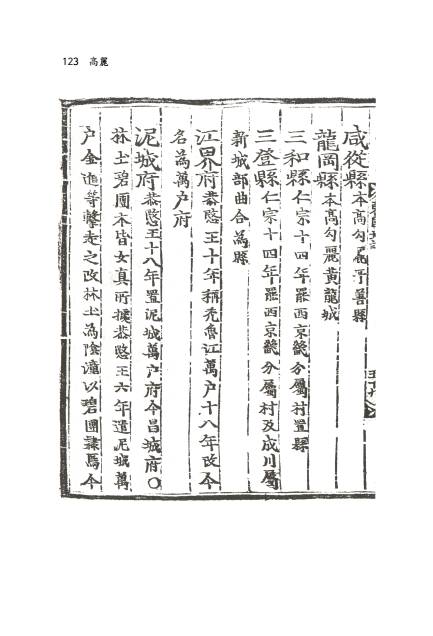 123 高麗
咸從縣本高勾麗牙善縣
龍岡縣本高勾麗黃龍城
三和縣仁宗十四年罷西京畿分屬村置縣
三登縣仁宗十四年罷西京畿分屬村及成川屬
新城部曲合為縣
江界府恭愍王十年稱禿魯江萬戶十八年改今
名為萬戶府
泥城府恭愍王十八年置泥城萬戶府今昌城府○
林土碧團本皆女真所據恭愍王六年遣泥城萬
戶金進等擊走之改林土為陰潼以碧團隸焉今